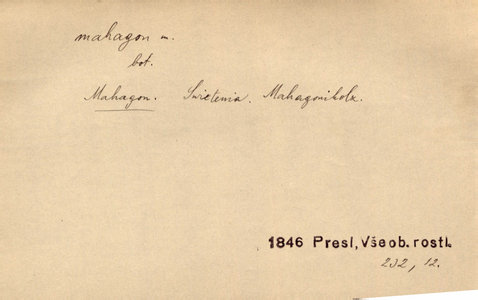 mahagon m.
bot.
Mahagon. Swietenia. Mahagoniholz.
1846 Presl, Všeob. rostl.
232, 12.